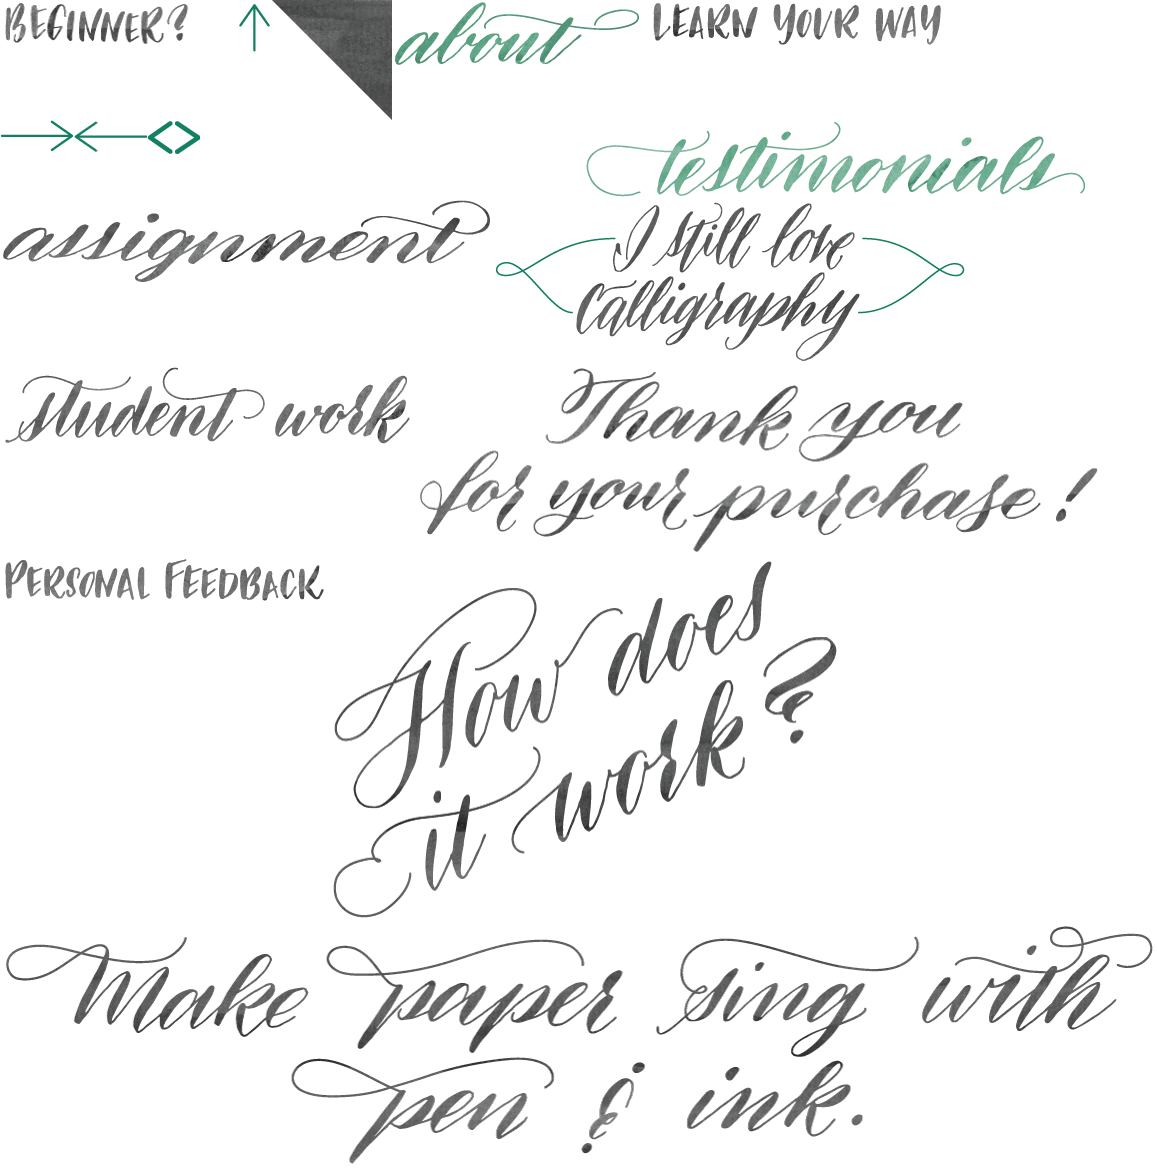 BEGINNER?
about
LEARN YOUR WAY
testimonials
assignment
I still love
Calligraphy
student work
Thank you
for your purchase!
PERSONAL FEEDBACK
How does
it work?
Make paper sing with
pen & ink.